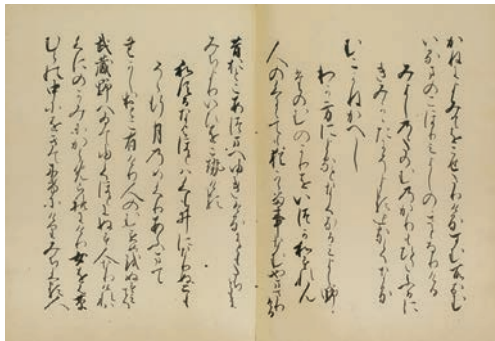 かねによみてをこせたりけるすむ所なむ
いるまのこほりみよしのゝさとなりける
みよしのゝたのむのかりもひたふるに
きみかかたにそよるとなくなる
むこかねかへし
わか方によるとなくなるみよし野の
たのむのかりをいつかわすれん
人のくにても猶かゝる事なむやまさりける
昔おとこあつまへゆきけるにともたちともに
みちよりいひをこせける
わするなよほとは雲井になりぬとも
そら行月のめくりあふまて
むかしおとこ有けり人のむすめをぬすみて
武蔵野へゐてゆくほとにぬす人なりけれは
くにのかみにからめられにけり女をは草
むらの中にをきてにけにけりみちくる人